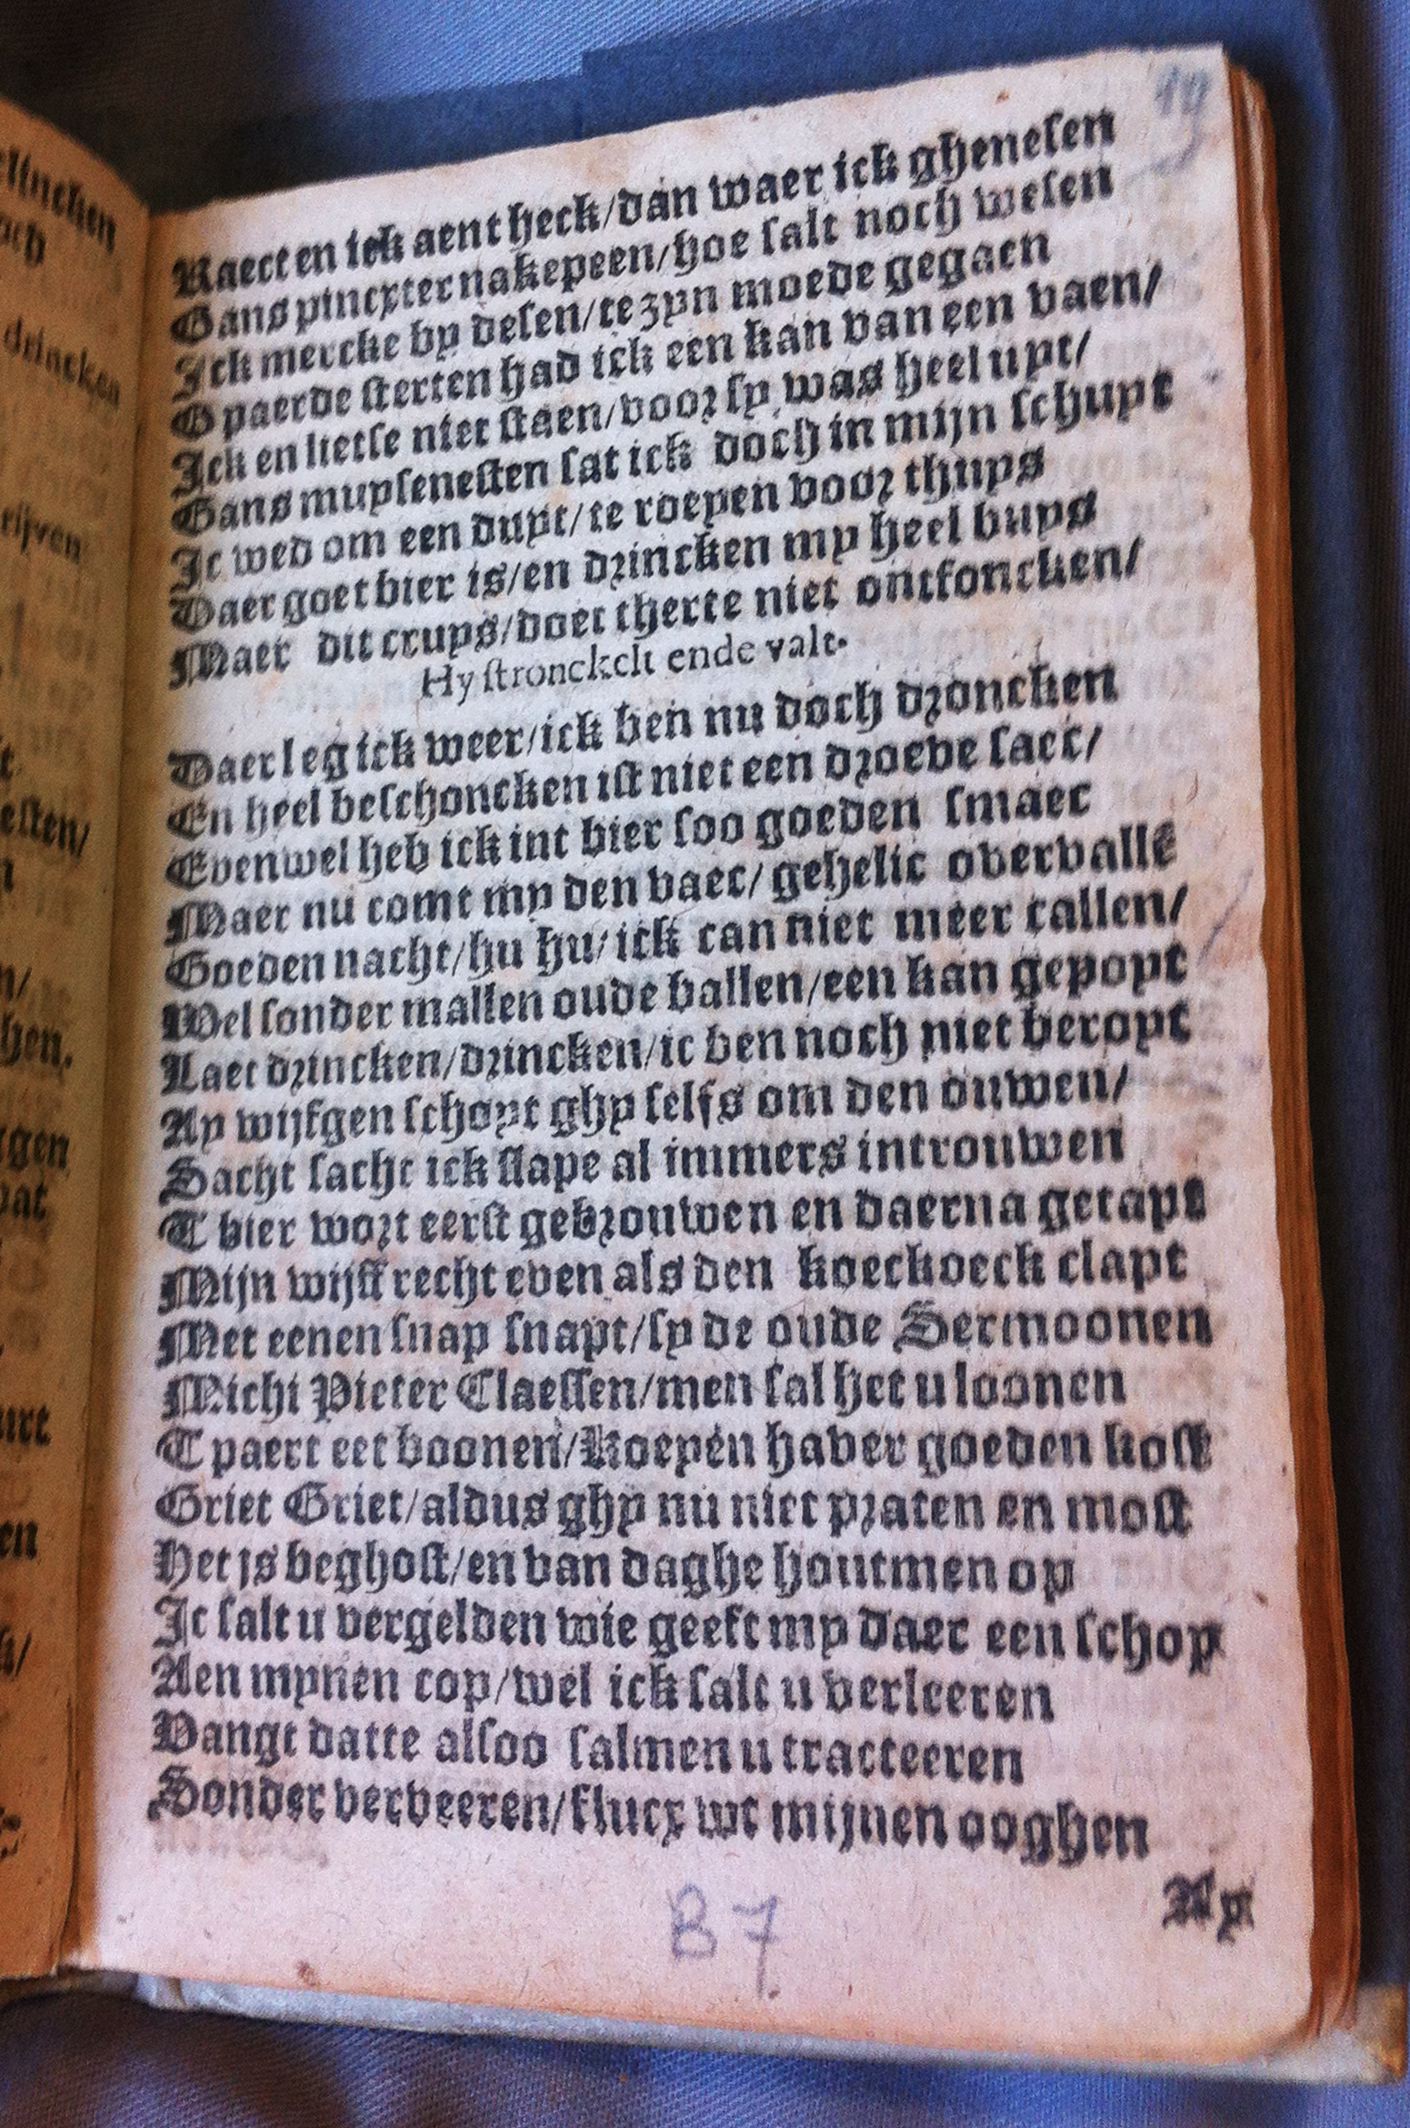 19
Raect en ick aent heck/dan waer ick ghenesen
Gans pincxter nakepeen/hoe salt noch wesen
Ick mercke by desen/te zyn moede gegaen
O paerde sterten had ick een kan van een vaen/
Ick en lietse niet staen/voor sy was heel uyt/
Gans muysenesten sat ick doch in mijn schuyt
Ic wed om een duyt/te roepen voor thuys
Daer goet bier is/en drincken my heel buys
Maer dit cruys/doet therte niet ontfoncken/
Hy stronckelt ende valt.
Daer leg ick weer/ick ben nu doch droncken
En heel beschoncken ist niet een droeve saec/
Evenwel heb ick int bier soo goeden smaec
Maer nu comt my den vaec/gehelic overvallē
Goeden nacht/hu hu/ick can niet meer callen/
Wel sonder mallen oude ballen/een kan gepopt
Laet drincken/drincken/ic ben noch niet beropt
Ay wijfgen schopt ghy selfs om den ouwen/
Sacht sacht ick slape al immers introuwen
T bier wort eerst gebrouwen en daerna getapt
Mijn wijff recht even als den koeckoeck clapt
Met eenen snap snapt/sy de oude Sermoonen
Michi Pieter Claessen/men sal het u loonen
T paert eet boonen/Koeyen haver goeden kost
Griet Griet/aldus ghy nu niet praten en most
Het is beghost/en van daghe houtmen op
Ic salt u vergelden wie geeft my daer een schop
Aen mynen cop/wel ick salt u verleeren
Vangt datte alsoo salmen u tracteeren
Sonder verveeren/flucx wt mijnen ooghen
Ay
B 7
elincken
och
drincken
rijven
esten/
hen.